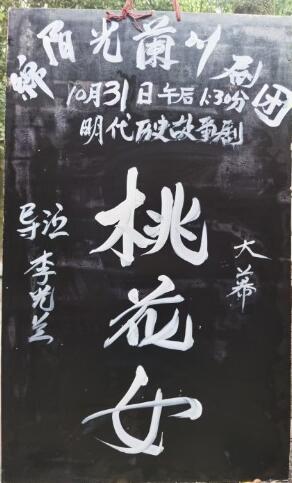 阳光兰川剧团
10月31日午后1:30分
明代历史故事剧
桃花女
大幕
导演 李光兰